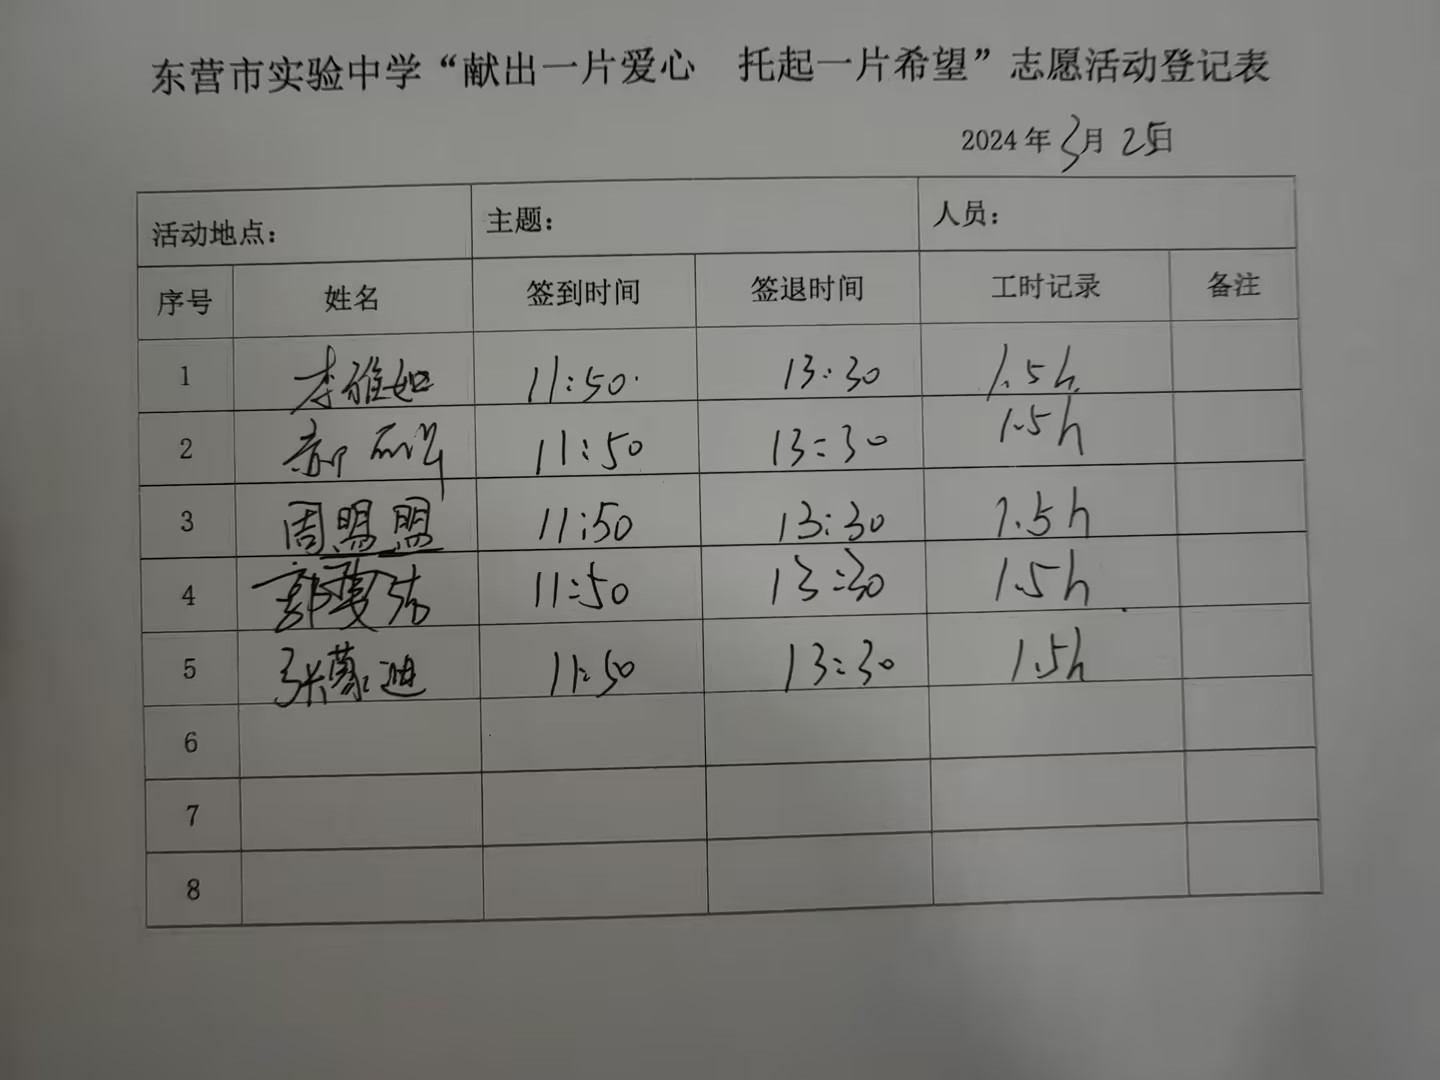 东营市实验中学“献出一片爱心 托起一片希望”志愿活动登记表
2024年3月25日
活动地点： 主题： 人员：
序号 姓名 签到时间 签退时间 工时记录 备注
1 李雅如 11:50 13:30 1.5h
2 11:50 13:30 1.5h
3 周盟盟 11:50 13:30 1.5h
4 11:50 13:30 1.5h
5 张蒙迪 11:50 13:30 1.5h
6
7
8